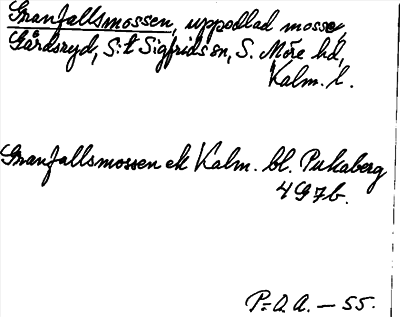 Granfallsmossen, uppodlad mosse,
Gårdsryd, S:t Sigfrids sn, S. Möre hd,
Kalm. l.
Granfallsmossen ek Kalm. bl. Pukaberg
4 G 7 b.
P:O.A. — 55.